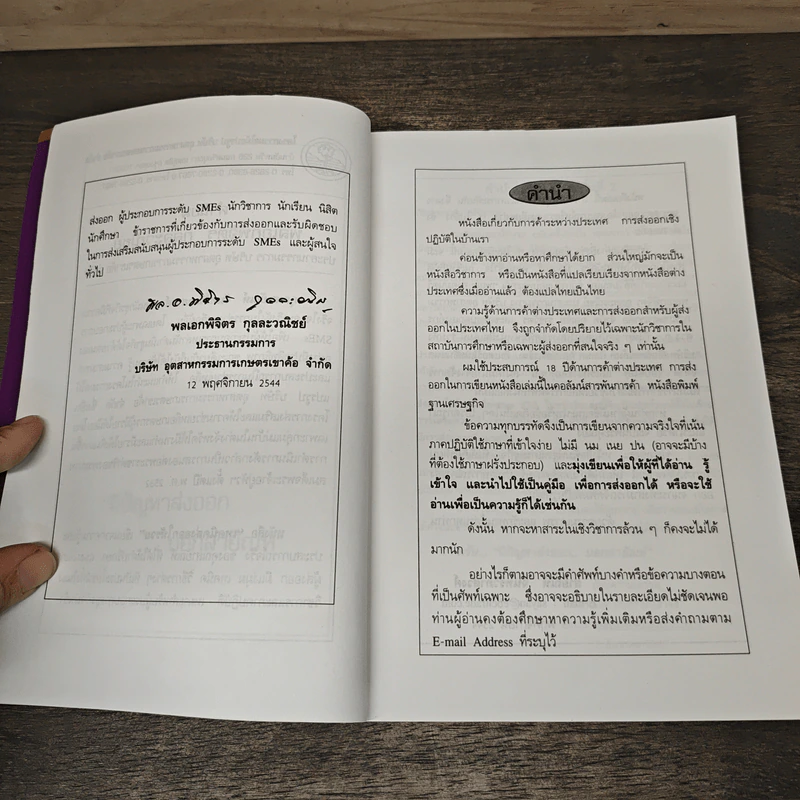 ส่งออก ผู้ประกอบการระดับ SMEs นักวิชาการ นักเรียน นิสิต
นักศึกษา ข้าราชการที่เกี่ยวข้องกับการส่งออกและรับผิดชอบ
ในการส่งเสริมสนับสนุนผู้ประกอบการระดับ SMEs และผู้สนใจ
ทั่วไป
พลเอกพิจิตร กุลละวณิชย์
ประธานกรรมการ
บริษัท อุตสาหกรรมการเกษตรเขาค้อ จำกัด
12 พฤศจิกายน 2544
คำนำ
หนังสือเกี่ยวกับการค้าระหว่างประเทศ การส่งออกเชิง
ปฏิบัติในบ้านเรา
ค่อนข้างหาอ่านหรือหาศึกษาได้ยาก ส่วนใหญ่มักจะเป็น
หนังสือวิชาการ หรือเป็นหนังสือที่แปลเรียบเรียงจากหนังสือต่าง
ประเทศซึ่งเมื่ออ่านแล้ว ต้องแปลไทยเป็นไทย
ความรู้ด้านการค้าต่างประเทศและการส่งออกสำหรับผู้ส่ง
ออกในประเทศไทย จึงถูกจำกัดโดยปริยายไว้เฉพาะนักวิชาการใน
สถาบันการศึกษาหรือเฉพาะผู้ส่งออกที่สนใจจริง ๆ เท่านั้น
ผมใช้ประสบการณ์ 18 ปีด้านการค้าต่างประเทศ การส่ง
ออกในการเขียนหนังสือเล่มนี้ในคอลัมน์สารพันการค้า หนังสือพิมพ์
ฐานเศรษฐกิจ
ข้อความทุกบรรทัดจึงเป็นการเขียนจากความจริงใจที่เน้น
ภาคปฏิบัติใช้ภาษาที่เข้าใจง่าย ไม่มี นม เนย ปน (อาจจะมีบ้าง
ที่ต้องใช้ภาษาฝรั่งประกอบ) และมุ่งเขียนเพื่อให้ผู้ที่ได้อ่าน รู้
เข้าใจ และนำไปใช้เป็นคู่มือ เพื่อการส่งออกได้ หรือจะใช้
อ่านเพื่อเป็นความรู้ก็ได้เช่นกัน
ดังนั้น หากจะหาสาระในเชิงวิชาการล้วน ๆ ก็คงจะไม่ได้
มากนัก
อย่างไรก็ตามอาจจะมีคำศัพท์บางคำหรือข้อความบางตอน
ที่เป็นศัพท์เฉพาะ ซึ่งอาจจะอธิบายในรายละเอียดไม่ชัดเจนพอ
ท่านผู้อ่านคงต้องศึกษาหาความรู้เพิ่มเติมหรือส่งคำถามตาม
E-mail Address ที่ระบุไว้